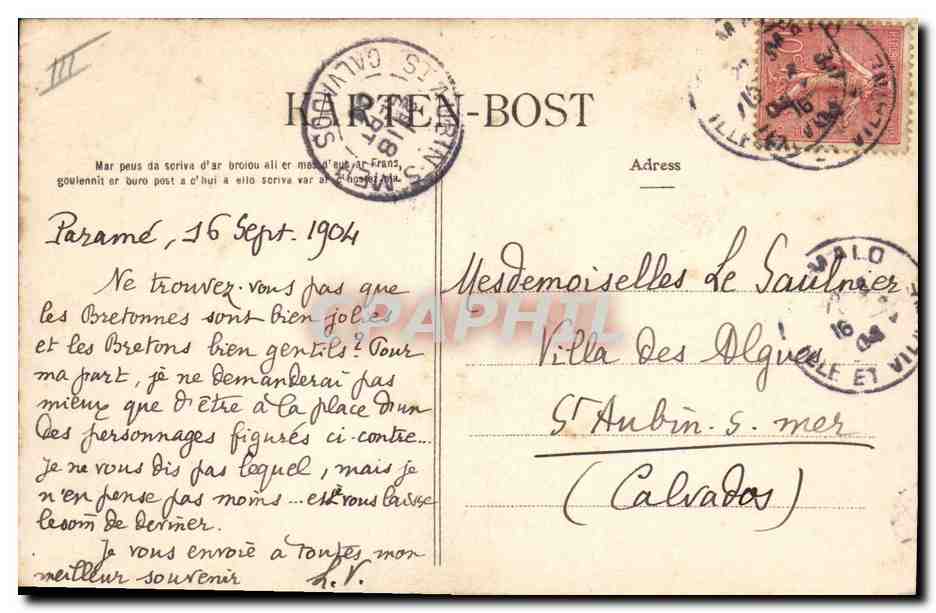 III
KARTEN-BOST
Mar peus da scriva d'ar broiou all er mes d'eus ar Frans,
goulennit er buro post a c'hui a ello scriva var ar
Adress
Paramé, 16 Sept. 1904
Ne trouvez-vous pas que
les Bretonnes sont bien jolies
et les Bretons bien gentils? Pour
ma part, je ne demanderai pas
mieux que d'être à la place d'un
des personnages figurés ci-contre...
Je ne vous dis pas lequel, mais je
n'en pense pas moins... et vous laisse
le soin de deviner.
Je vous envoie à toutes mon
meilleur souvenir L.V.
Mesdemoiselles Le Saulnier
Villa des Algues
St Aubin-s-mer
(Calvados)
AUBIN S. MER
CALVADOS
18
MALO
16
04
ILLE ET VIL
CPAPHIL